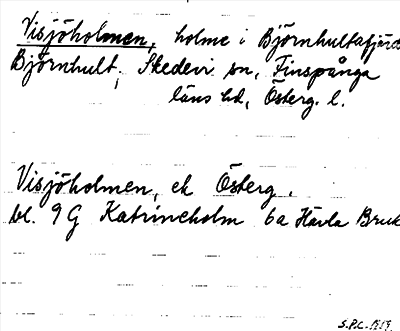 Visjöholmen, holme i Björnhultafjärd
Björnhult, Skedevi sn, Finspånga
läns hd, Österg. l.
Visjöholmen, ek Österg.
bl. 9 G Katrineholm 6a Hävla Bruk
S.P.C. 1959.